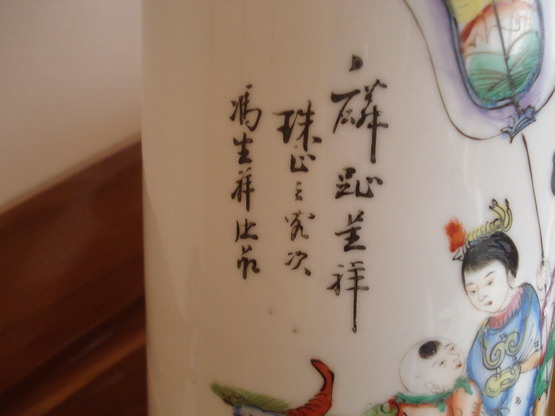 麟趾呈祥
珠山之客次
馮生祥